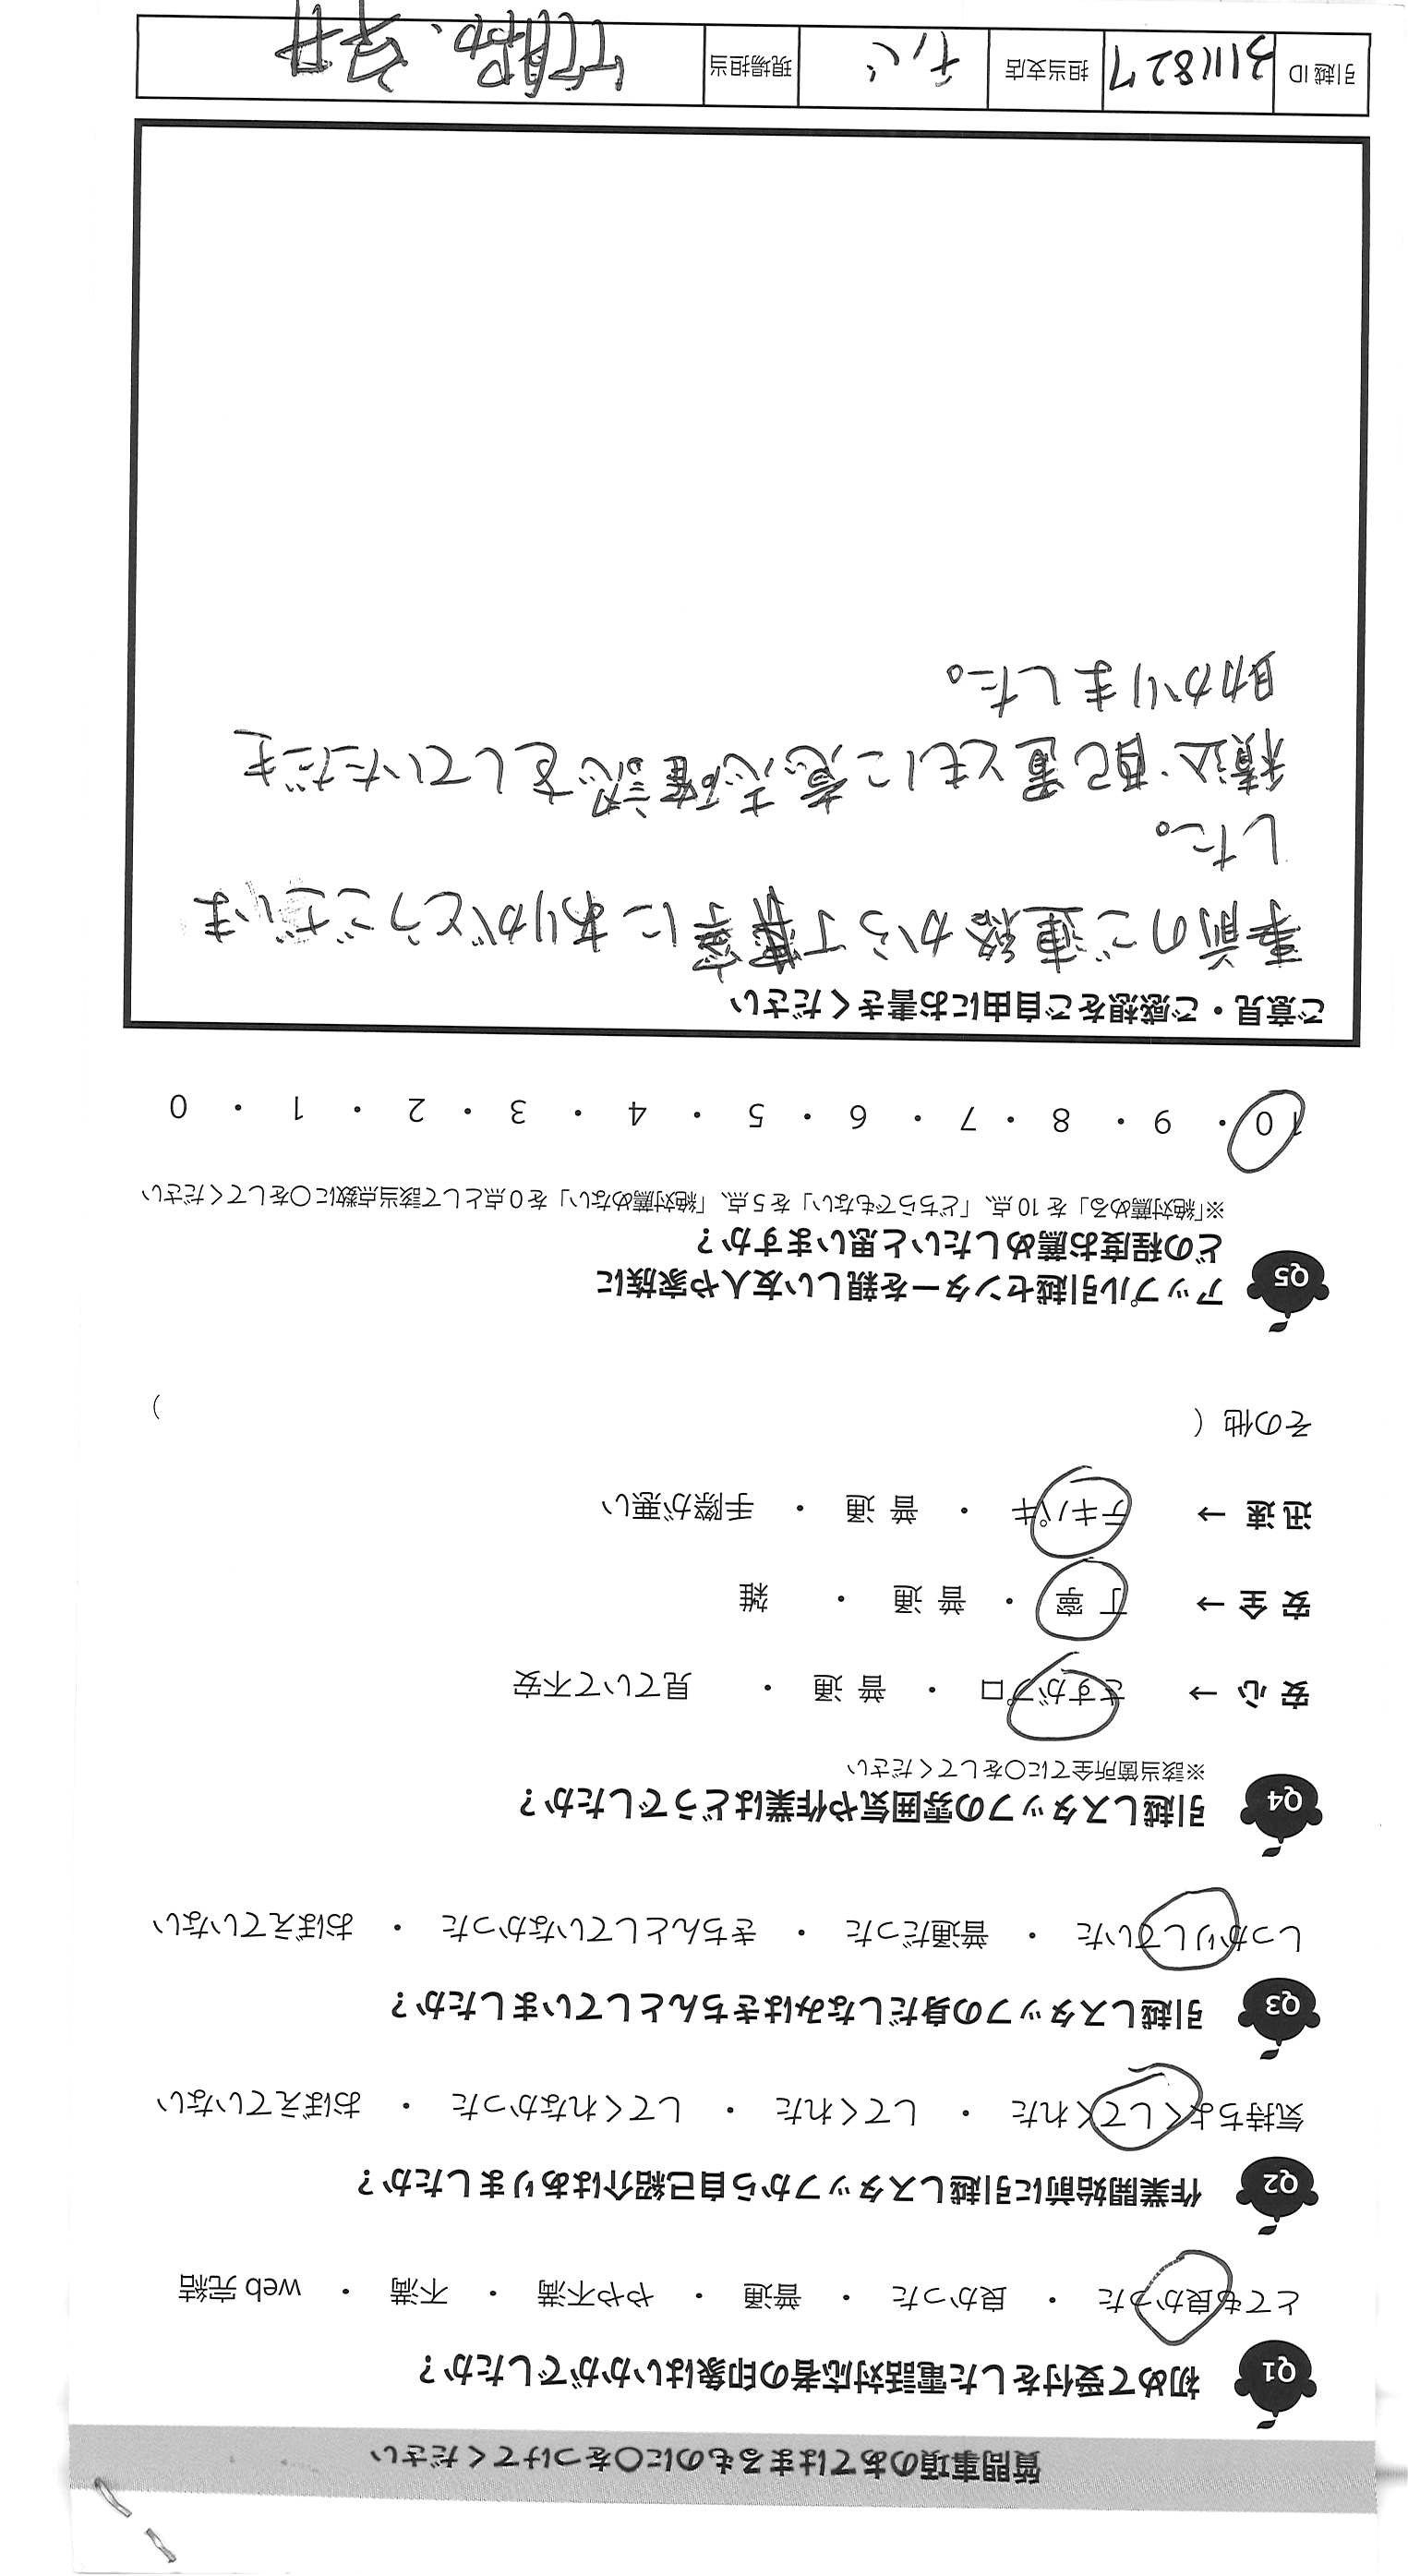 質問事項のあてはまるものに〇をつけてください
Q1 初めて受付をした電話対応者の印象はいかがでしたか？
とても良かった ・ 良かった ・ 普通 ・ やや不満 ・ 不満 ・ web 完結
Q2 作業開始前に引越しスタッフから自己紹介はありましたか？
気持ちよくしてくれた ・ してくれた ・ してくれなかった ・ おぼえていない
Q3 引越しスタッフの身だしなみはきちんとしていましたか？
しっかりしていた ・ 普通だった ・ きちんとしていなかった ・ おぼえていない
Q4 引越しスタッフの雰囲気や作業はどうでしたか？
※該当箇所全てに〇をしてください
安 心 → さすがプロ ・ 普 通 ・ 見ていて不安
安 全 → 丁 寧 ・ 普 通 ・ 雑
迅 速 → テキパキ ・ 普 通 ・ 手際が悪い
その他（ ）
Q5 アップル引越センターを親しい友人や家族に
どの程度お薦めしたいと思いますか？
※「絶対薦める」を 10 点、「どちらでもない」を 5 点、「絶対薦めない」を 0 点として該当点数に〇をしてください
10 ・ 9 ・ 8 ・ 7 ・ 6 ・ 5 ・ 4 ・ 3 ・ 2 ・ 1 ・ 0
ご意見・ご感想をご自由にお書きください
事前のご連絡から丁寧にありがとうございま
した。
積込、配置ともに意志確認をしていただき
助かりました。
引越 ID 3111827 担当支店 チバ 現場担当